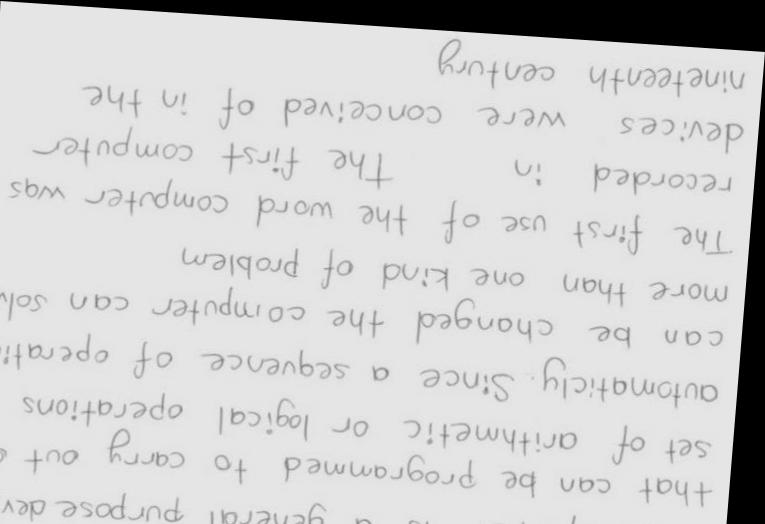 a general purpose dev
that can be programmed to carry out
set of arithmetic or logical operations
automaticly. Since a sequence of operati
can be changed the computer can solv
more than one kind of problem
The first use of the word computer was
recorded in The first computer
devices were conceived of in the
nineteenth century